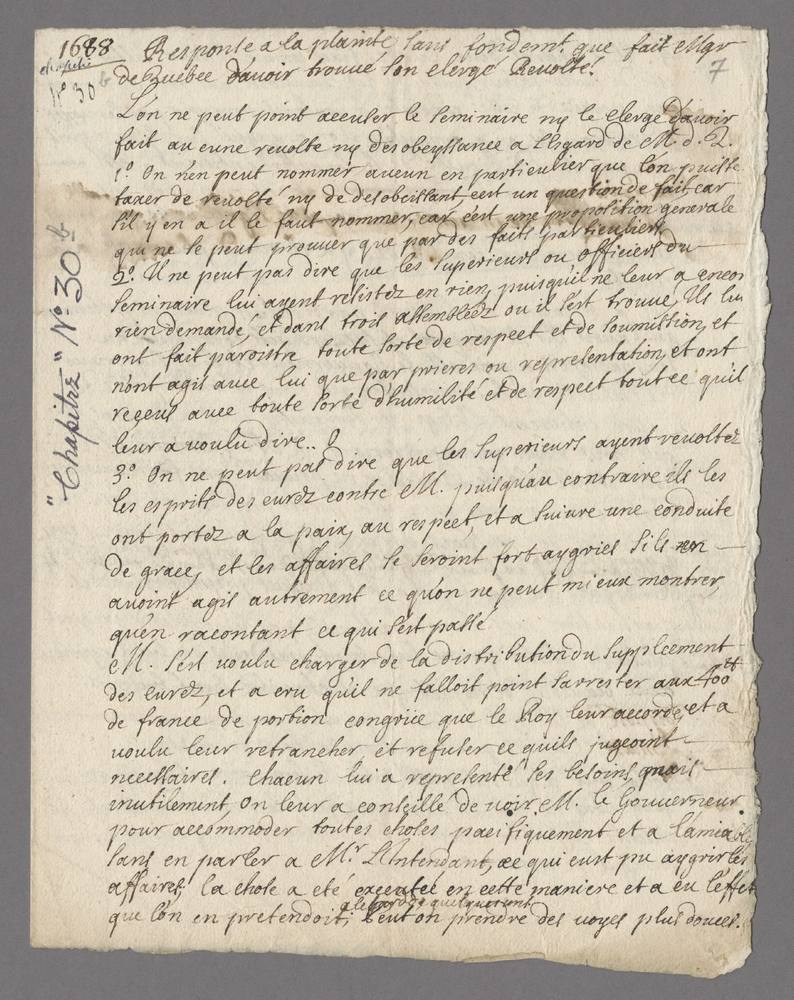 1688
chapitre
N° 30 b
7
"Chapitre" N° 30 b
Response a la plainte sans fondemt. que fait Mgr
de Quebec d'avoir trouvé son clergé Revolté.
L'on ne peut point accuser le seminaire ny le clergé d'avoir
fait aucune revolte ny desobeyssance a l'Esgard de M. d. Q.
1°. On n'en peut nommer aucun en particulier que l'on puisse
taxer de revolté ny de desobeissant, c'est un question de fait car
s'il y en a il le faut nommer, car c'est une proposition generale
qui ne se peut prouver que par des faits particuliers.
2°. Il ne peut pas dire que les superieurs ou officiers du
seminaire lui ayent resistez en rien, puisqu'il ne leur a encor
rien demandé, et dans trois assembleez ou il s'est trouvé, Ils lui
ont fait paroistre toute sorte de respect et de soumission, et
n'ont agis avec lui que par prieres ou representation, et ont
reçeus avec toute sorte d'humilité et de respect tout ce qu'il
leur a voulu dire..
3°. On ne peut pas dire que les superieurs ayent revoltez
les esprits des curez contre M. puisqu'au contraire ils les
ont portez a la paix, au respect, et a suivre une conduite
de grace, et les affaires se seroint fort aygries s'ils en
avoint agis autrement ce qu'on ne peut mieux montrer,
qu'en racontant ce qui s'est passé
M. s'est voulu charger de la distribution du supplcement
des curez, et a cru qu'il ne falloit point s'arrester aux 400tt
de france de portion congrüe que le Roy leur accorde, et a
voulu leur retrancher et refuser ce qu'ils jugeoint
necessaires. Chacun lui a representé ses besoins, mais
inutilement, On leur a conseillé de voir M. le Gouverneur
pour accommoder toutes choses pacifiquement et a l'amiable
sans en parler a Mr. L'Intendant, ce qui eust pu aygrir les
affaires. la chose a eté executée en cette maniere et a eu l'effet
a l'egard de quelques uns
que l'on en pretendoit, Peut on prendre des voyes plus douces.